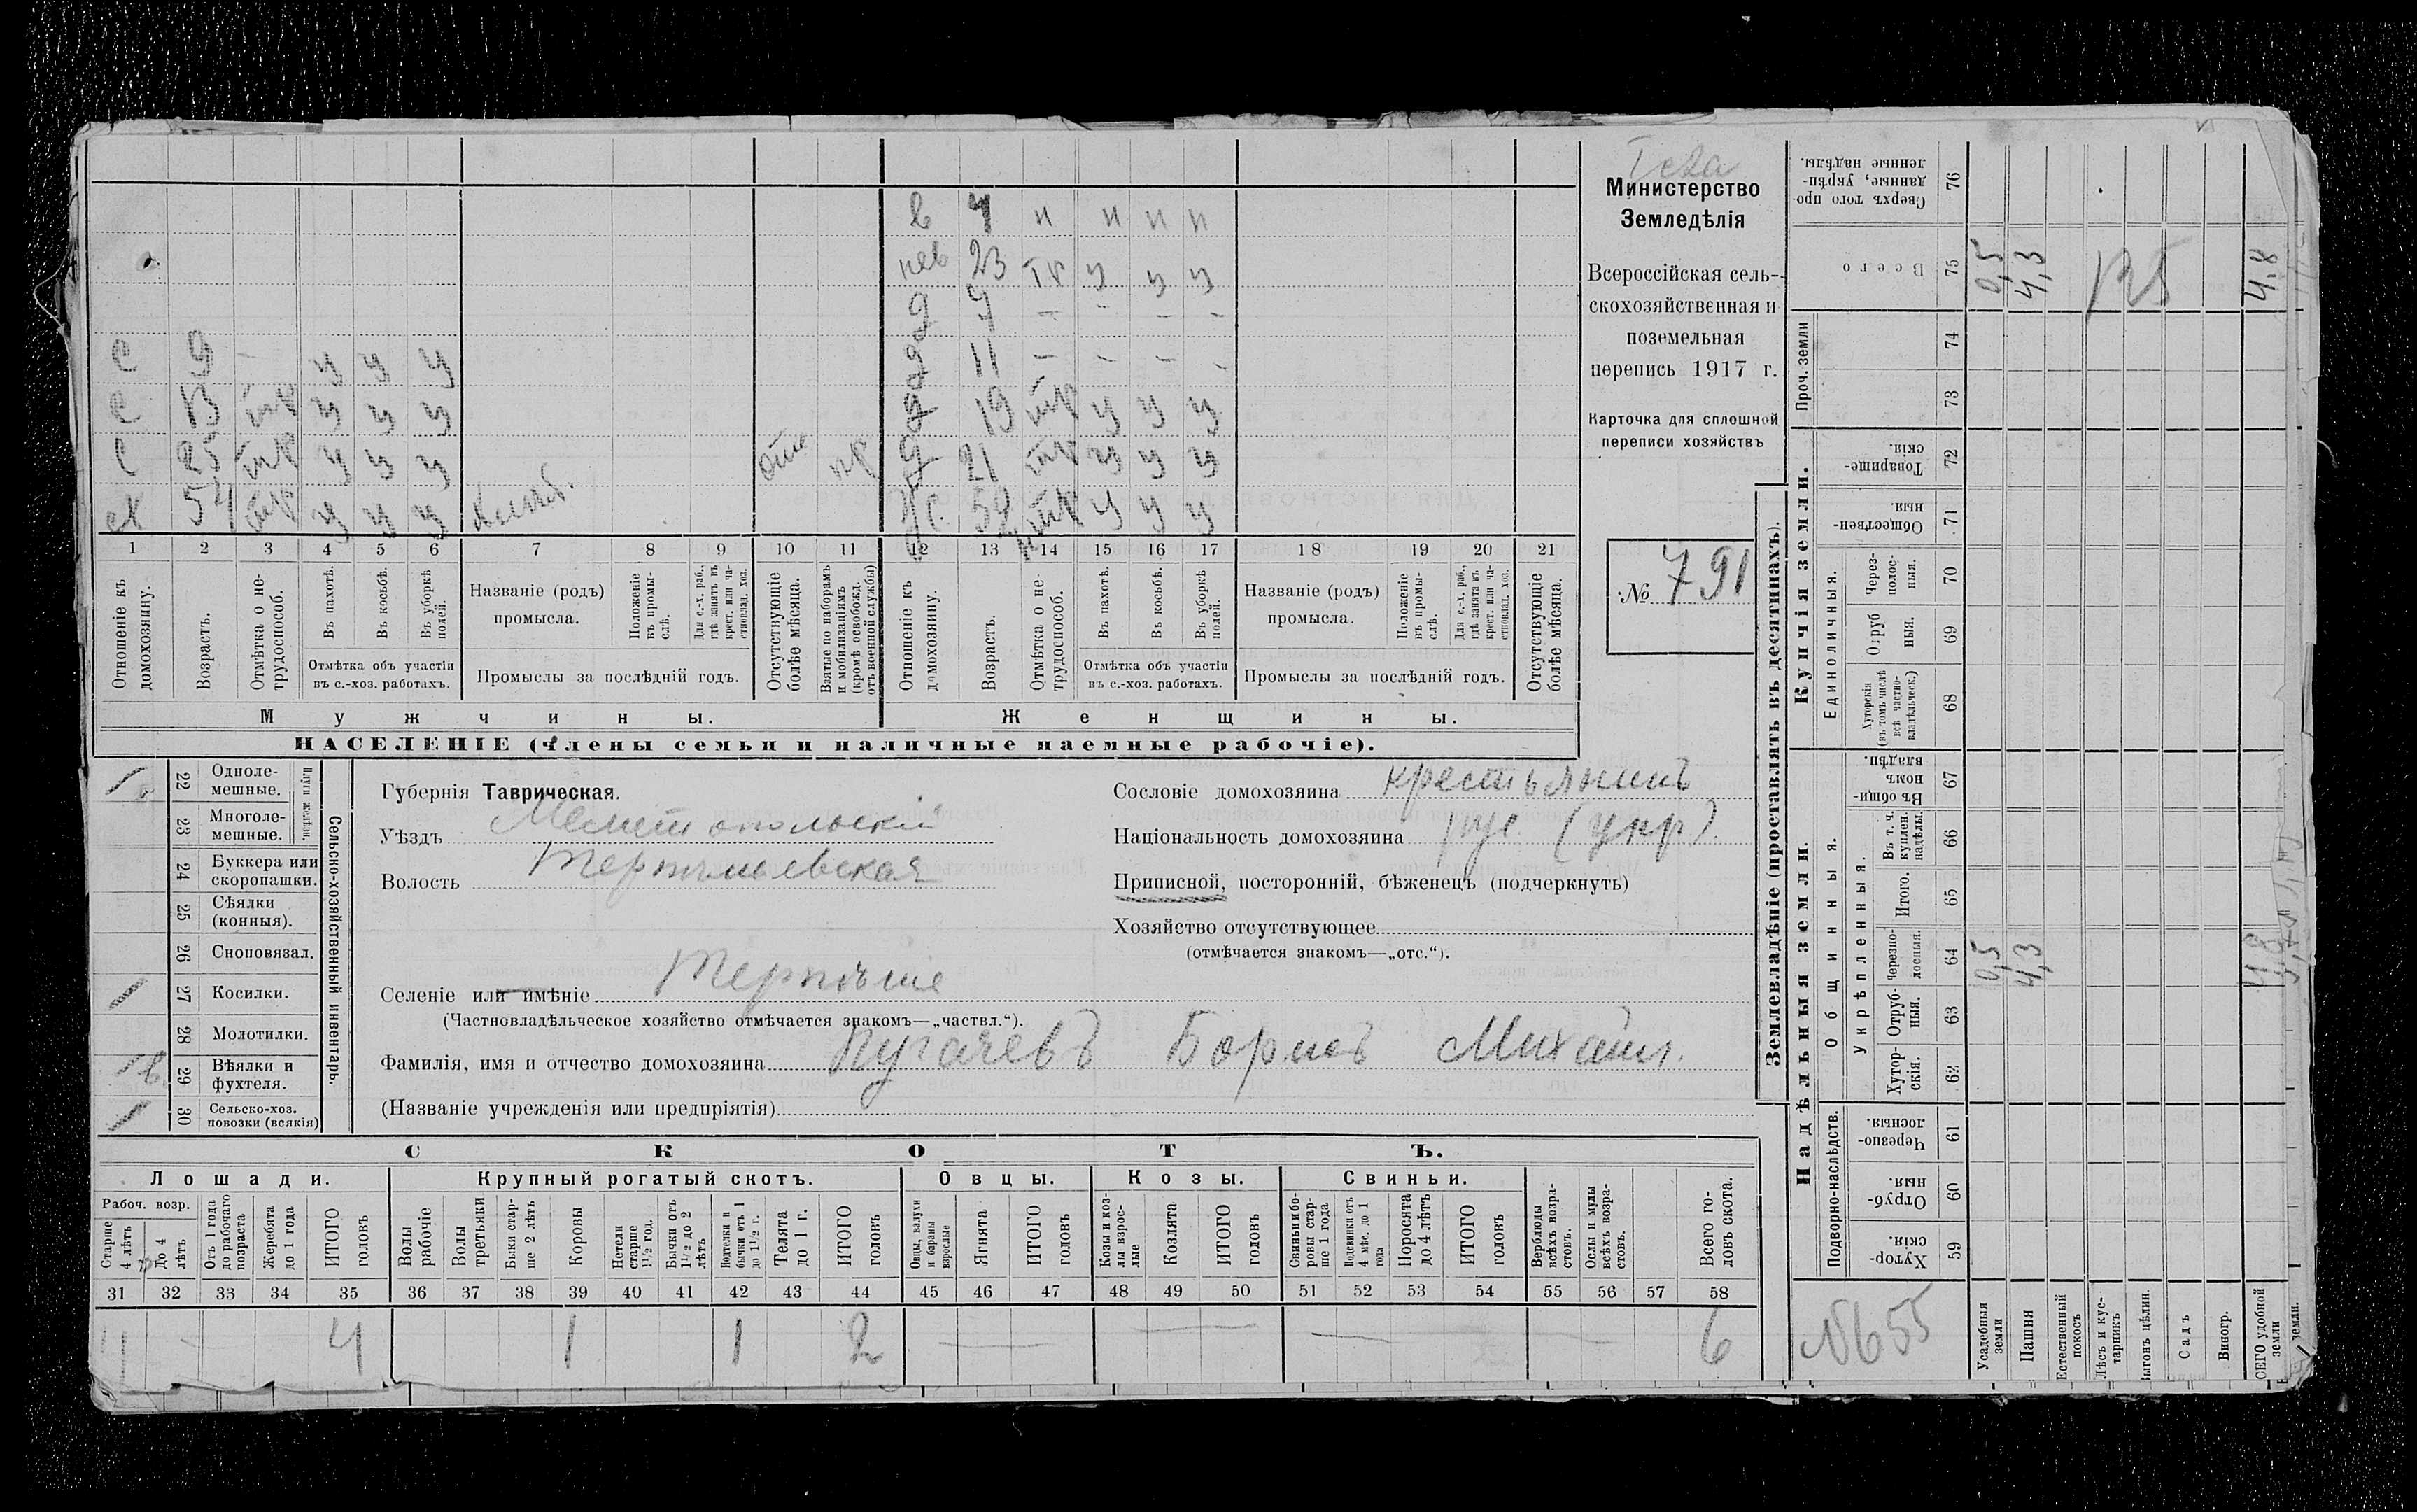 Министерство
Земледѣлія
Всероссійская сель-
скохозяйственная и
поземельная
перепись 1917 г.
Карточка для сплошной
переписи хозяйствъ
№ 791
в 4 н н н н
нев 23 тк у у у
д 7 – – – –
с 9 – у у у д 11 – – – –
с 13 тк у у у д 19 тк у у у
с 25 тк у у у отс нк д 21 тк у у у
х 54 тк у у у ж 52 тк у у у
1 2 3 4 5 6 7 8 9 10 11 12 13 14 15 16 17 18 19 20 21
Отношеніе къ домохозяину.
Возрастъ.
Отмѣтка о не-трудоспособ.
Въ пахотѣ.
Въ косьбѣ.
Въ уборкѣ полей.
Отмѣтка объ участіи
въ с.-хоз. работахъ.
Названіе (родъ)
промысла.
Положеніе въ промы-слѣ.
Для с.-х. раб., гдѣ занятъ въ крест. или ча-стновлад. хоз.
Промыслы за послѣдній годъ.
Отсутствующіе болѣе мѣсяца.
Взятые по наборамъ и мобилизаціямъ (кромѣ освобожд. отъ военной службы)
Отношеніе къ домохозяину.
Возрастъ.
Отмѣтка о не трудоспособ.
Въ пахотѣ.
Въ косьбѣ.
Въ уборкѣ полей.
Отмѣтка объ участіи
въ с.-хоз. работахъ.
Названіе (родъ)
промысла.
Положеніе въ промы-слѣ.
Для с.-х. раб., гдѣ занята въ крест. или ча-стновлад. хоз.
Промыслы за послѣдній годъ.
Отсутствующіе болѣе мѣсяца.
Мужчины. Женщины.
НАСЕЛЕНІЕ (члены семьи и наличные наемные рабочіе).
Сельско-хозяйственный инвентарь.
Плуги желѣзн.
22 Одноле-мешные.
23 Многоле-мешные.
24 Буккера или скоропашки.
25 Сѣялки (конныя).
26 Сноповязал.
27 Косилки.
28 Молотилки.
29 Вѣялки и фухтеля.
30 Сельско-хоз. повозки (всякія)
Губернія Таврическая.
Уѣздъ Мелитопольскій
Волость Терпѣньевская
Селеніе или имѣніе Терпѣніе
(Частновладѣльческое хозяйство отмѣчается знакомъ—„частвл.“).
Фамилія, имя и отчество домохозяина Пугачевъ Борисъ Михаил.
(Названіе учрежденія или предпріятія)
Сословіе домохозяина крестьянинъ
Національность домохозяина рус (укр)
Приписной, посторонній, бѣженецъ (подчеркнуть)
Хозяйство отсутствующее
(отмѣчается знакомъ—„отс.“).
СКОТЪ.
Лошади. Крупный рогатый скотъ. Овцы. Козы. Свиньи.
Рабоч. возр.
Старше 4 лѣтъ
До 4 лѣтъ
Отъ 1 года до рабочаго возраста
Жеребята до 1 года
ИТОГО головъ
Волы рабочіе
Волы третьяки
Быки стар-ше 2 лѣтъ
Коровы
Нетели старше 1½ год.
Бычки отъ 1½ до 2 лѣтъ
Подтелки и бычки отъ 1 до 1½ г.
Телята до 1 г.
ИТОГО головъ
Овцы, валухи и бараны взрослые
Ягнята
ИТОГО головъ
Козы и коз-лы взрос-лые
Козлята
ИТОГО головъ
Свиньи и бо-ровы стар-ше 1 года
Подсвинки отъ 4 мѣс. до 1 года
Поросята до 4 лѣтъ
ИТОГО головъ
Верблюды всѣхъ возра-стовъ.
Ослы и мулы всѣхъ возра-стовъ.
Всего го-ловъ скота.
31 32 33 34 35 36 37 38 39 40 41 42 43 44 45 46 47 48 49 50 51 52 53 54 55 56 57 58
4 – 4 1 1 2 – – – – 6
Землевладѣніе (проставлять въ десятинахъ).
Надѣльныя земли. Купчія земли.
Подворно-наслѣдств.
Общинныя.
Укрѣпленныя.
Единоличныя.
Проч. земли
59 Хутор-скія.
60 Отруб-ныя.
61 Черезпо-лосныя.
62 Хутор-скія.
63 Отруб-ныя.
64 Черезпо-лосныя.
65 Итого.
66 Въ т. ч. куплен. надѣлы.
67 Въ общи-номъ владѣн.
68 Хуторскія (въ томъ числѣ всѣ частно-владѣльческ.)
69 Отруб ныя.
70 Через-полос-ныя.
71 Обществен-ныя.
72 Товарище-скія.
73
74
75 Всего
76 Сверхъ того про-данные, укрѣп-ленные надѣлы.
Усадебныя земли 0,5 0,5
Пашня 4,3 4,3
Естественный покосъ
Лѣсъ и кус-тарникъ
Выгонъ цѣлин.
Садъ
Виногр.
СЕГО удобной земли 4,8 4,8
№655